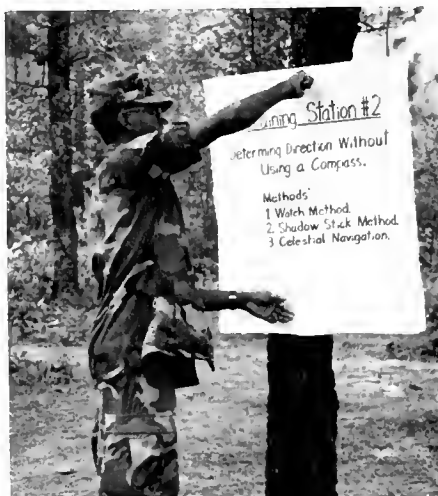 Station #2
Determing Direction Without
Using a Compass.
Methods'
1 Watch Method.
2. Shadow Stick Method.
3 Celestial Navigation.